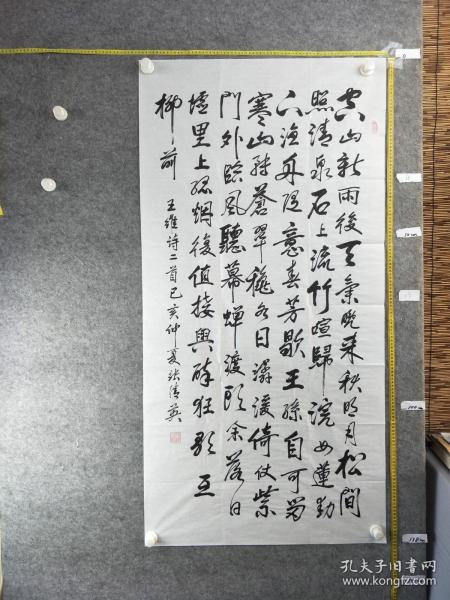 空山新雨後天氣晚来秋明月松間
照清泉石上流竹喧歸浣女蓮動
下渔舟随意春芳歇王孫自可留
寒山转蒼翠秋水日潺湲倚仗柴
門外临風聽暮蝉渡头余落日
墟里上孤烟復值接輿醉狂歌五
柳前
王维诗二首己亥仲夏张清英
孔夫子旧书网
www.kongfz.com